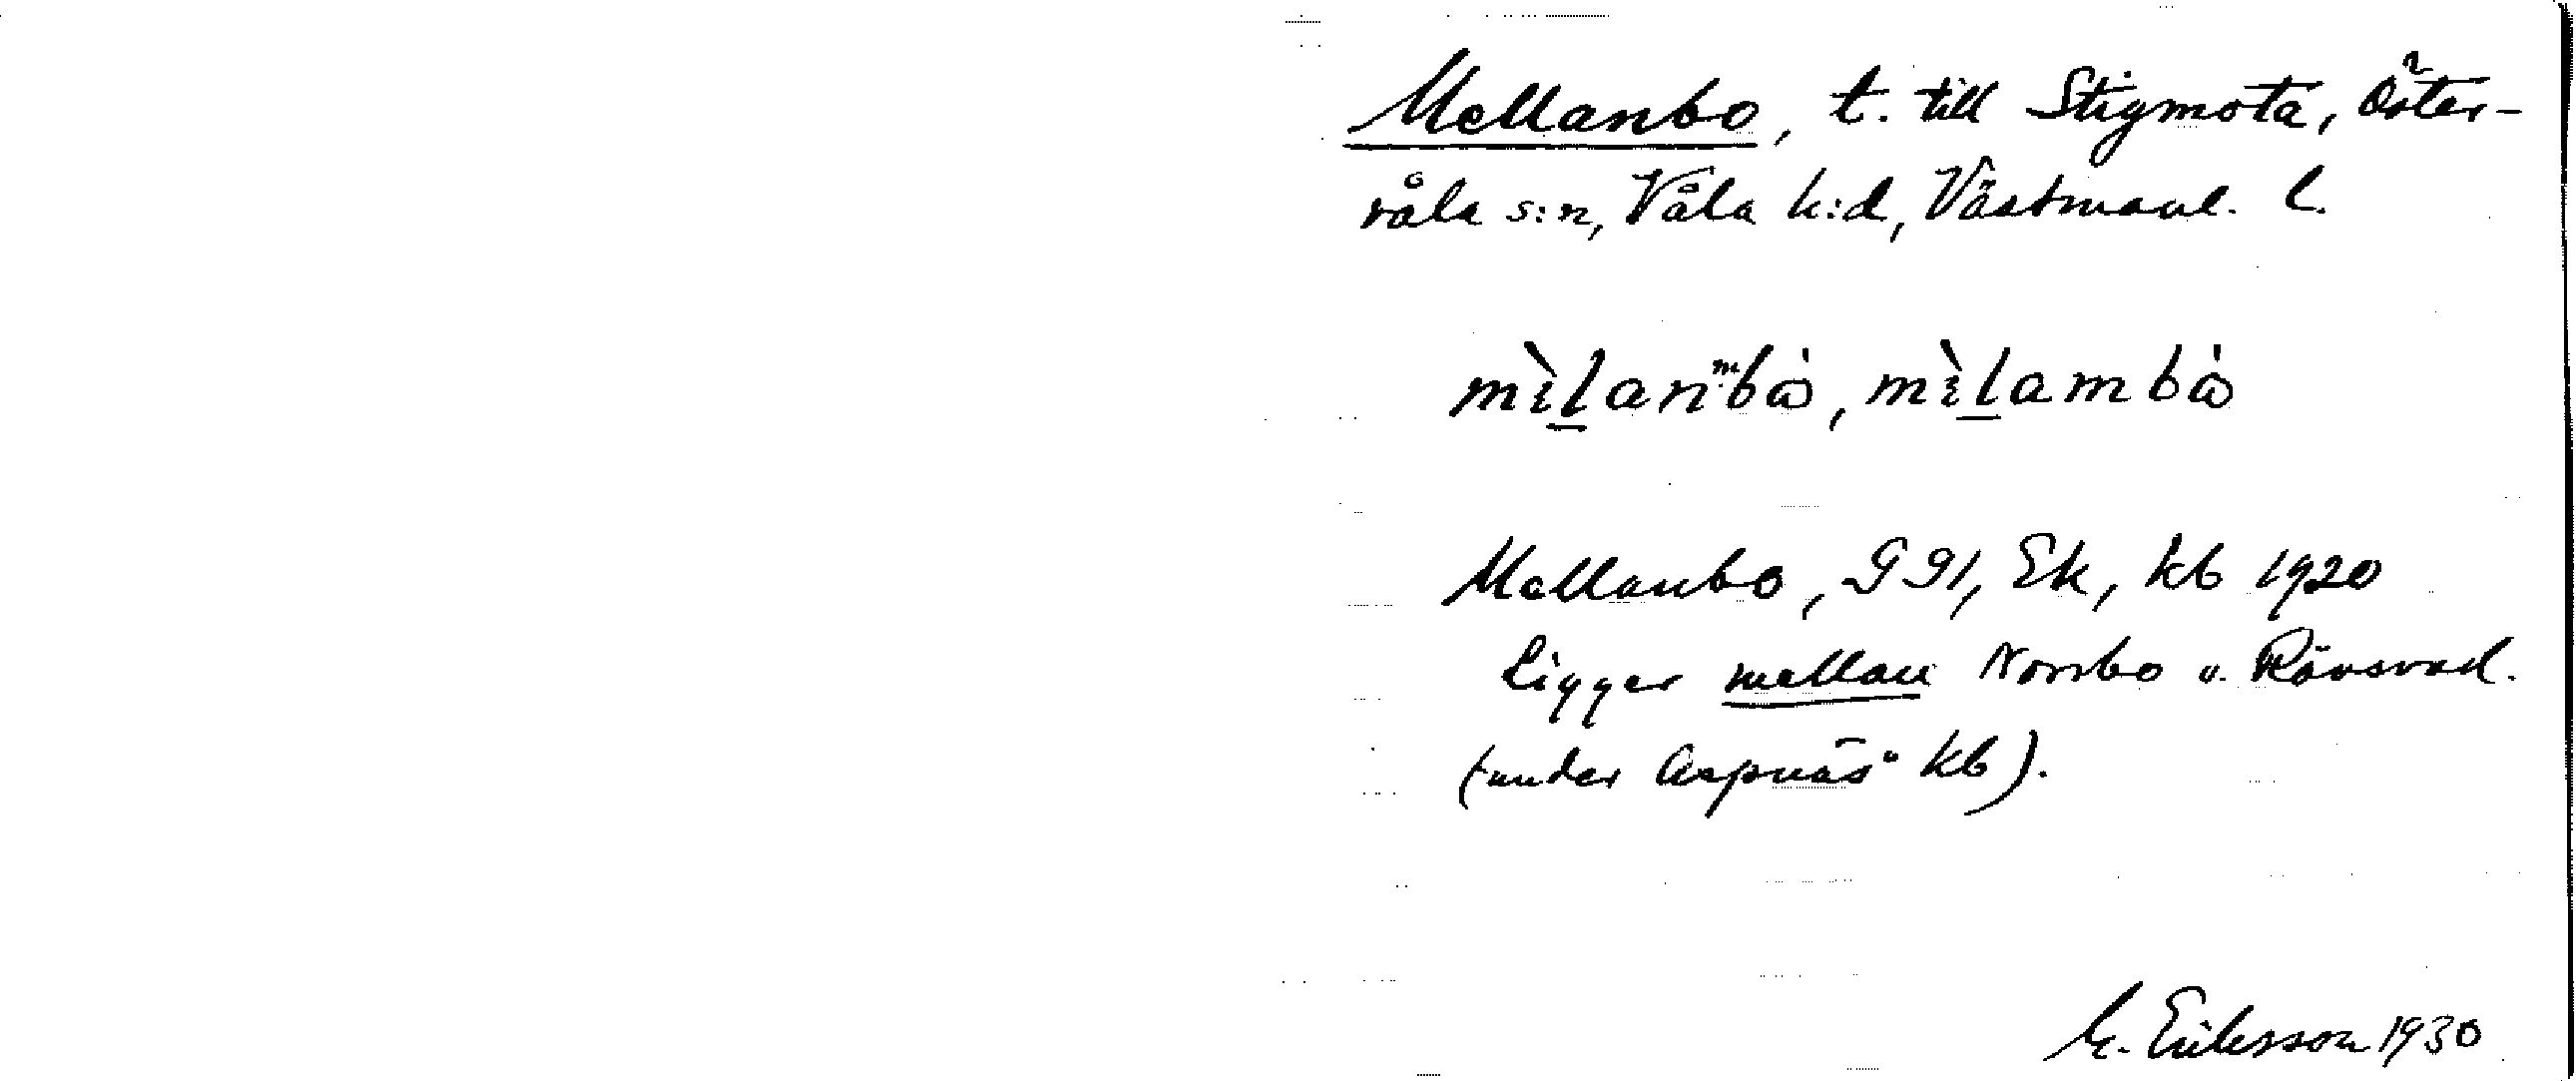 Mellanbo, t. till Stigmota, Öster-
våla s:n, Våla h:d, Västmanl. l.
mìlanᵐbὼ, mìlambὼ
Mellanbo, G 91, Ek, kb 1920
Ligger mellan Norrbo o. Rävsvad.
(under Aspnäs" kb).
M. Eriksson 1930